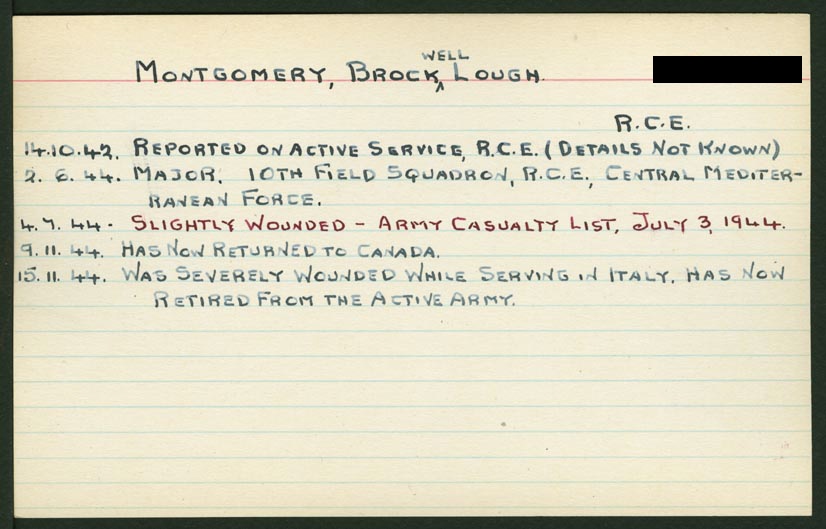 MONTGOMERY, BROCKWELL LOUGH.
R.C.E.
14.10.42. REPORTED ON ACTIVE SERVICE, R.C.E. (DETAILS NOT KNOWN)
2. 6. 44. MAJOR. 10TH FIELD SQUADRON, R.C.E., CENTRAL MEDITER-
RANEAN FORCE.
4.7. 44. SLIGHTLY WOUNDED - ARMY CASUALTY LIST, JULY 3, 1944.
9.11. 44. HAS NOW RETURNED TO CANADA.
15.11. 44. WAS SEVERELY WOUNDED WHILE SERVING IN ITALY. HAS NOW
RETIRED FROM THE ACTIVE ARMY.